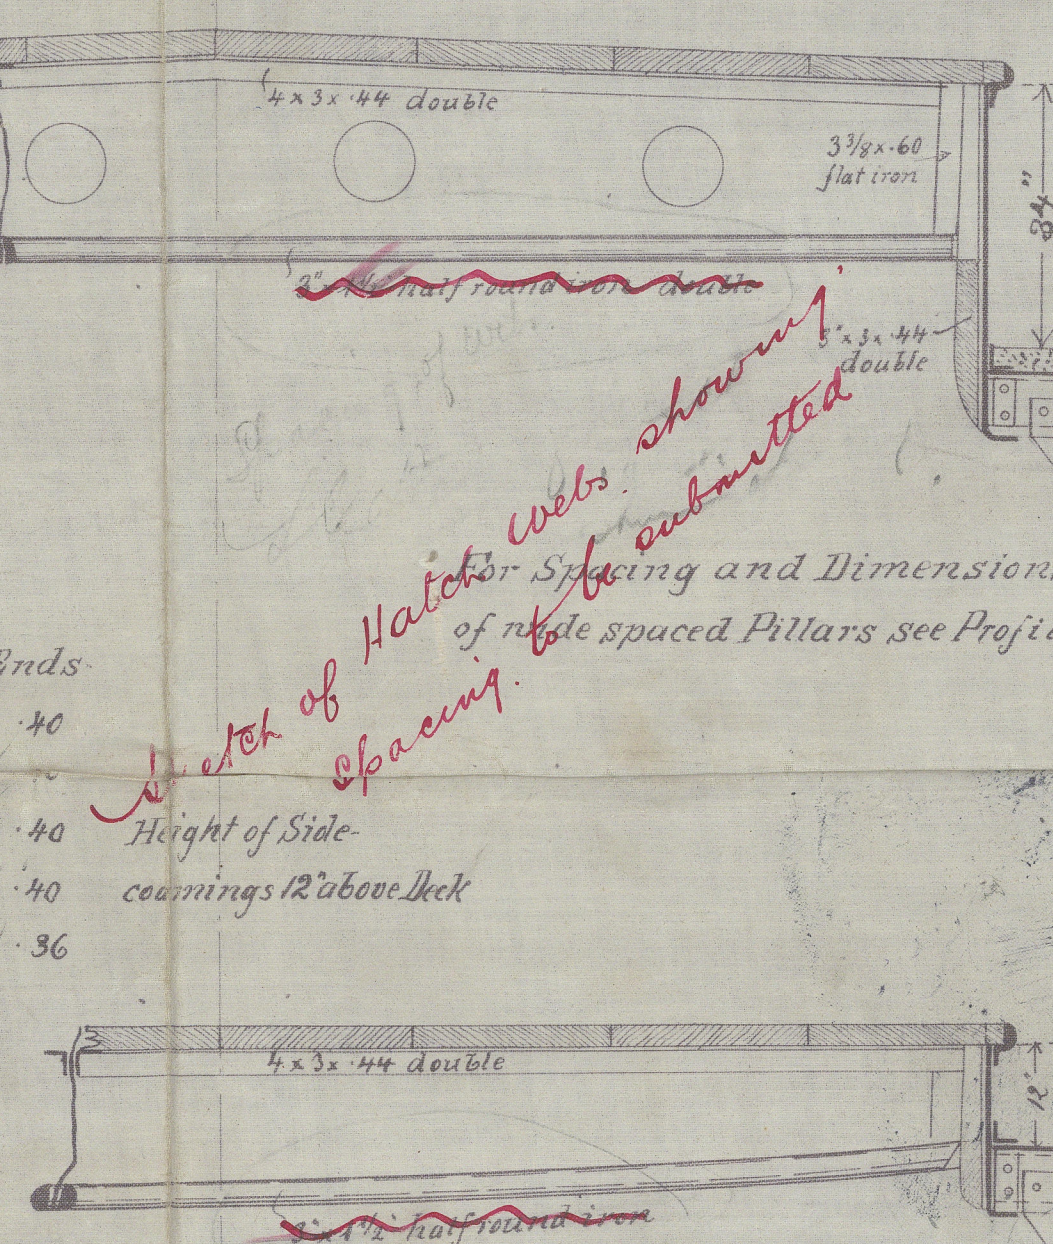 4 x 3 x .44 double
3 3/8 x .60
flat iron
34"
3" x 1 1/2 half round iron double
3" x 3 x .44
double
of web
Sketch of Hatch webs showing
spacing. to be submitted
For Spacing and Dimension
of wide spaced Pillars see Profi
Ends
.40
.40
.40
.36
Height of Side-
coamings 12" above Deck
4 x 3 x .44 double
12"
3" x 1 1/2" half round iron